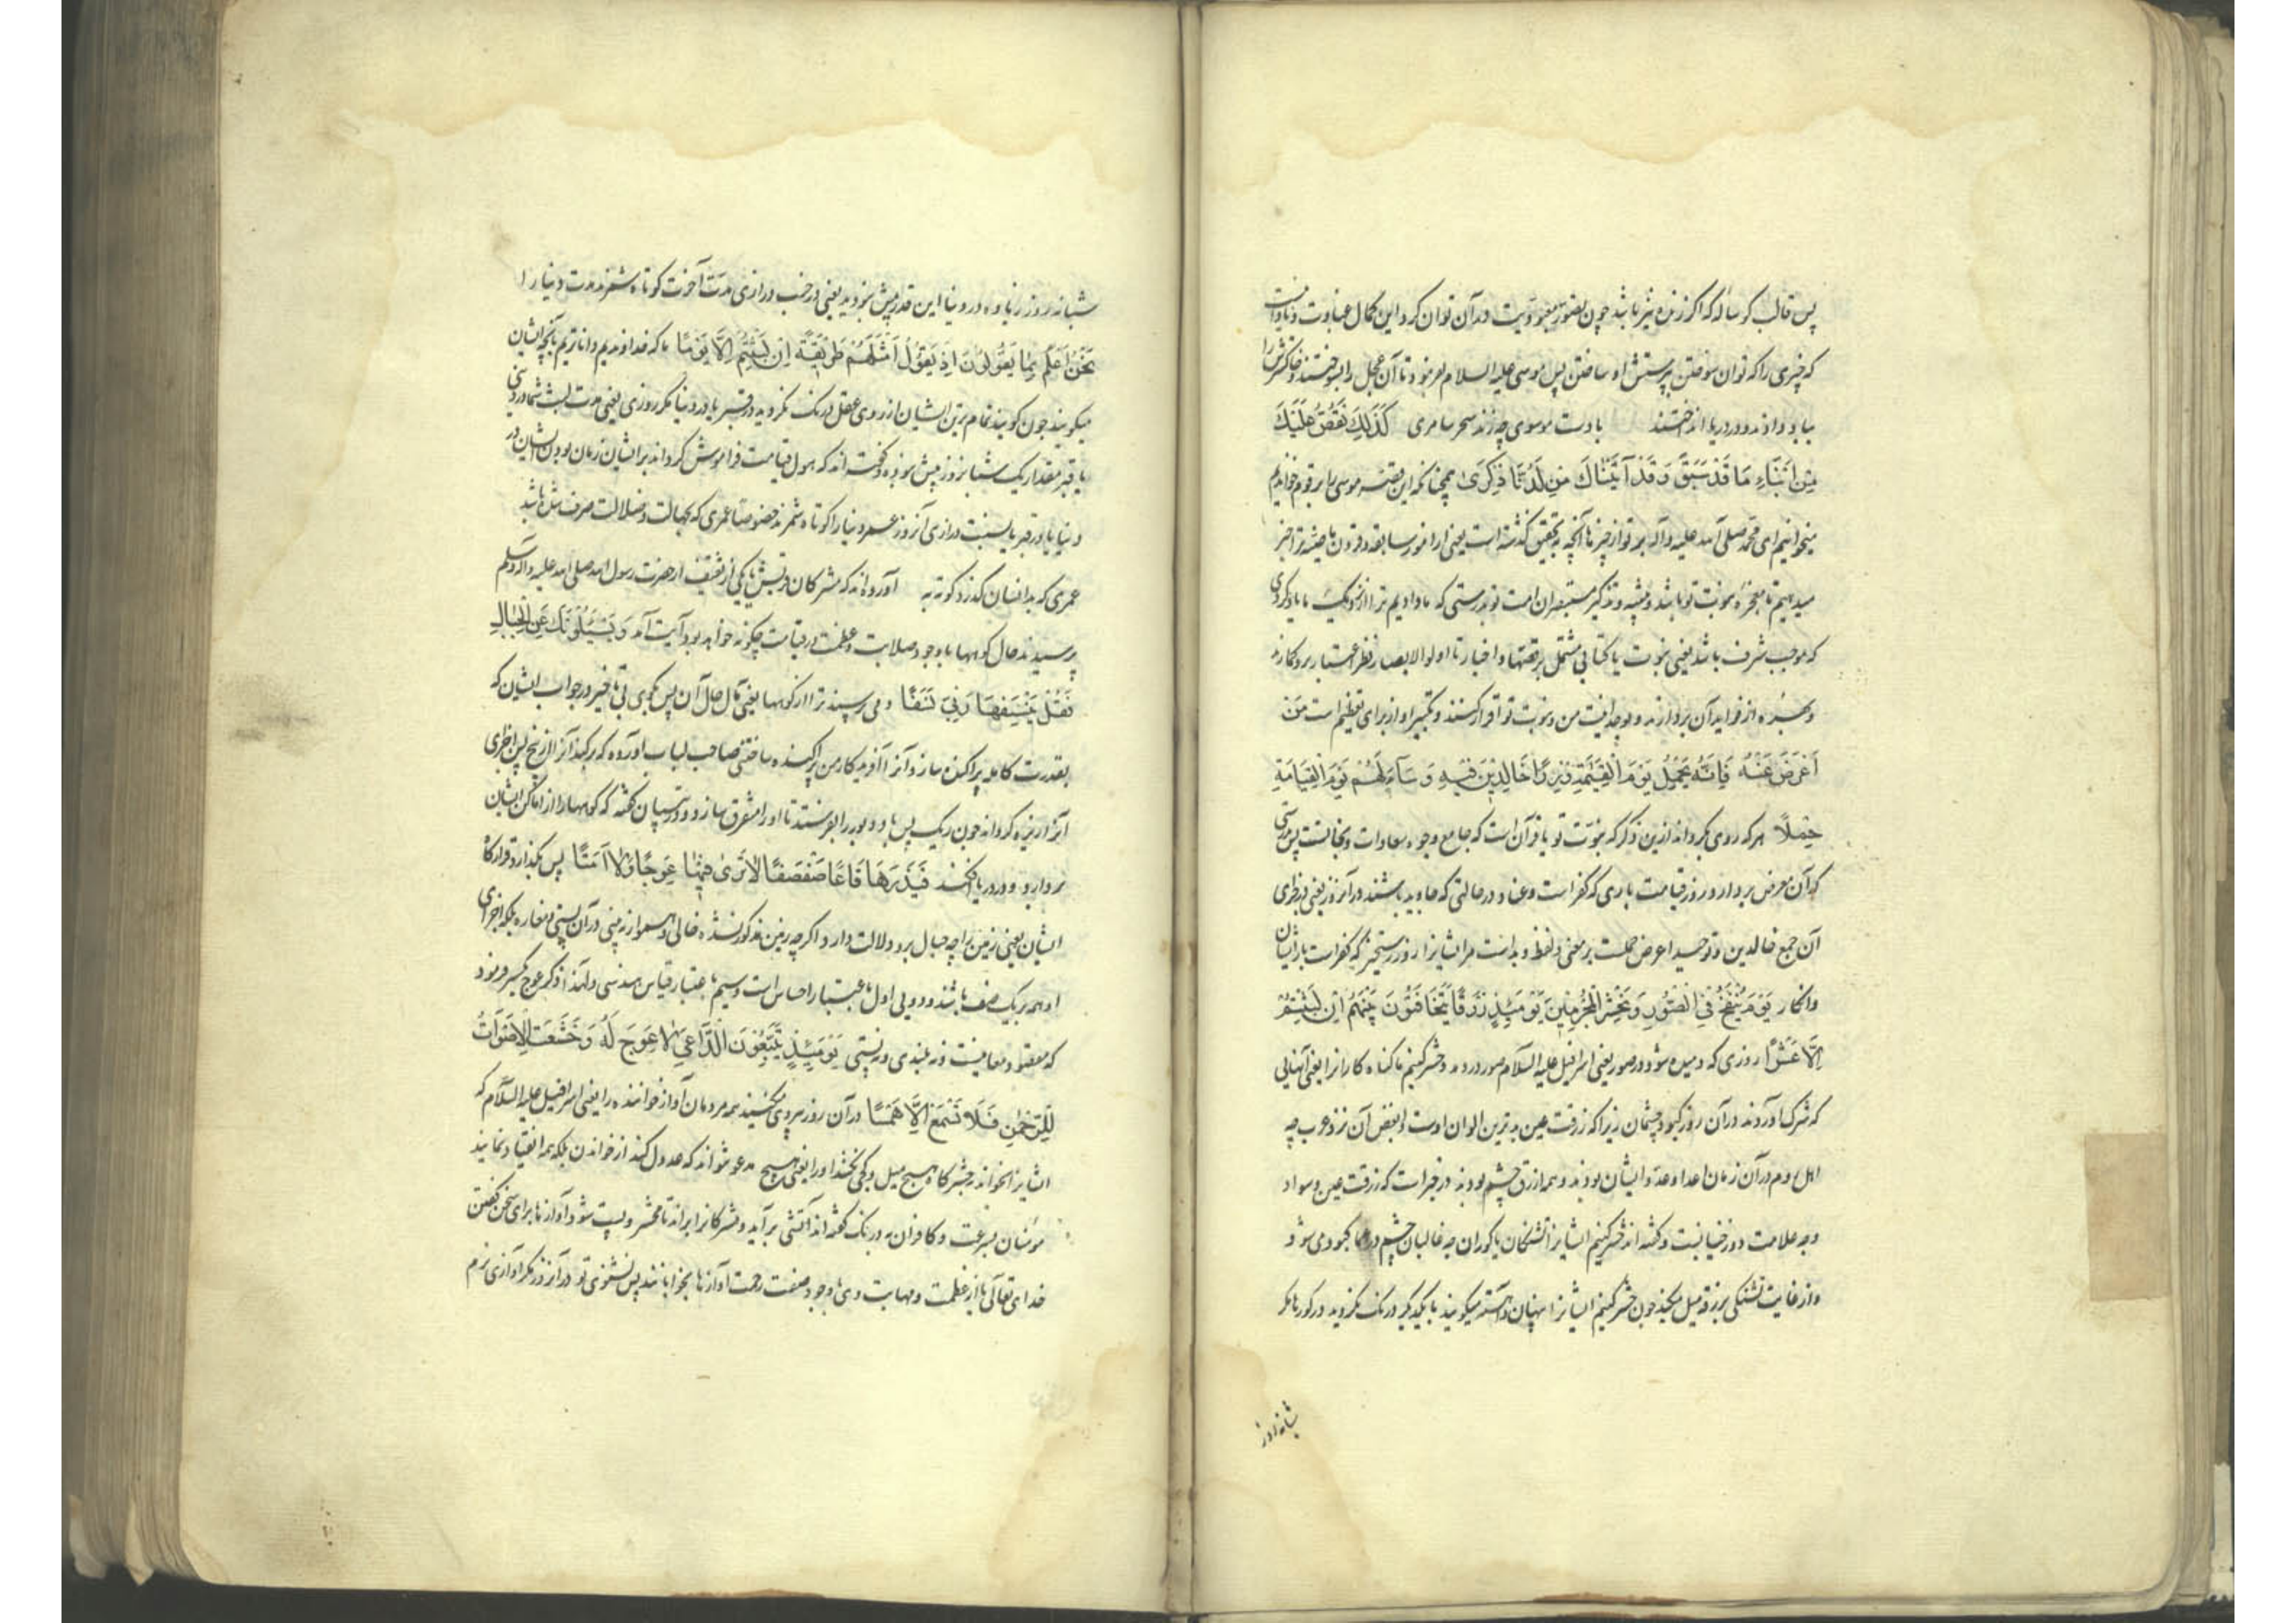 پس قالب کوساله که اکر زنده نیز باشد چون تصور معبودیت در آن توان کرد این کمال غباوت و نادانیست
که چیزی را که توان سوختن پرستش او ساختن پس موسی علیه السلام بفرمود تا آن عجل را بسوختند و خاکسترش را
بباد دادند و در دریا انداختند با دست موسوی چه زند سحر سامری كَذَٰلِكَ نَقُصُّ عَلَيْكَ
مِنْ أَنْبَاءِ مَا قَدْ سَبَقَ وَقَدْ آتَيْنَاكَ مِنْ لَدُنَّا ذِكْرَى همچنانکه این قصه موسی را بر تو میخوانیم
میخوانیم ای محمد صلی الله علیه وآله بر تو از خبرها آنچه بتحقیق کذشته است یعنی از امور سابقه و قرون ماضیه ترا خبر
میدهیم تا معجزه نبوت تو باشد و تنبیه و تذکیر مستبصران امت تو بدرستی که ما دادیم ترا از نزدیک ما یادکردی
که موجب شرف باشد یعنی نبوت یا کتابی مشتمل بر قصتها و اخبار تا اولو الابصار نظر اعتبار برو کمارند
و بهره از فواید آن بردارند و بوحدانیت من و نبوت تو اقرار کنند و تکبیر او از برای تعظیم است مَنْ
أَعْرَضَ عَنْهُ فَإِنَّهُ يَحْمِلُ يَوْمَ الْقِيَامَةِ وِزْرًا خَالِدِينَ فِيهِ وَسَاءَ لَهُمْ يَوْمَ الْقِيَامَةِ
حِمْلًا هر که روی بکرداند ازین ذکر که نبوت تو یا قرآن است که جامع وجوه سعادات و نجاتست پس بدرستی
که آن معرض بردارد روز قیامت باری که کفر است و عناد در حالتی که جاوید باشند در آن وزر یعنی در جزای
آن جمع خالدین و توحید اعرض حملست بر معنی و لفظ و بد است مر ایشانرا روز رستخیز که کفر است بار ایشان
و انکار يَوْمَ يُنْفَخُ فِي الصُّورِ وَنَحْشُرُ الْمُجْرِمِينَ يَوْمَئِذٍ زُرْقًا يَتَخَافَتُونَ بَيْنَهُمْ إِنْ لَبِثْتُمْ
إِلَّا عَشْرًا روزی که دمیده شود در صور یعنی اسرافیل علیه السلام صور در دمد و حشر کنیم ما کناه کارانرا یعنی آنهایی
که شرک آوردند در آن روز کبود چشمان زیرا که زرقت عین بدترین الوان اوست و ابغض آن نزد عرب چه
اهل روم در آن زمان اعدا عدو ایشان بودند و همه ازرق چشم بودند در خبر است که زرقت عین و سواد
وجه علامت دوزخیانست و کفته اند حشر کنیم ایشانرا تشنکان یا کوران چه غالبا چشم در عما کبود می شود
و از غایت تشنکی بزرقه میل میکند چون حشر کنیم ایشانرا پنهان و آهسته میکویند با یکدیکر درنک نکردید در کورها مکر
شبانه روز
شبانه روز زیاده در دنیا این قدر بیش نبودید یعنی در جنب درازی مدت آخرت کوتاه شمرند مدت دنیا را
نَحْنُ أَعْلَمُ بِمَا يَقُولُونَ إِذْ يَقُولُ أَمْثَلُهُمْ طَرِيقَةً إِنْ لَبِثْتُمْ إِلَّا يَوْمًا ما که خداوندیم داناتریم بآنچه ایشان
میکویند چون کویند تمام ترین ایشان از روی عقل درنک نکردید در قبر یا در دنیا مکر روزی یعنی مدت لبث شما در دنیا
یا قبر مقدار یک شبانروز بیش نبوده و کفته اند که هول قیامت فراموش کرداند بر ایشان زمان بودن ایشان در
دنیا یا در قبر یا بنسبت درازی آنروز عمر دنیا را کوتاه شمرند خصوصا عمری که بجهالت و ضلالت صرف شده باشد
عمری که بدانسان کذرد کوته به آورده اند که مشرکان قریش یا یکی از ثقیف از حضرت رسول الله صلی الله علیه وآله وسلم
پرسیدند حال کوهها با وجود صلابت و عظمت در قیامت چکونه خواهد بود آیت آمد وَيَسْأَلُونَكَ عَنِ الْجِبَالِ
فَقُلْ يَنْسِفُهَا رَبِّي نَسْفًا و می پرسند ترا از کوهها یعنی مآل حال آن پس بکوی بی تاخیر در جواب ایشان که
بقدرت کامله پراکنده سازد آنرا آفریدکار من پراکنده ساختنی صاحب لباب آورده که برکند آنرا از بیخ پس اجزای
آنرا ریزه کرداند چون ریک پس باد دبور را بفرستد تا او را متفرق سازد و در تبیان کفته که کوهها را از اماکن ایشان
بردارد و در دریا افکند فَيَذَرُهَا قَاعًا صَفْصَفًا لَا تَرَى فِيهَا عِوَجًا وَلَا أَمْتًا پس بکذارد قرارکاه
ایشان یعنی زمین را چه جبال برو دلالت دارد اکرچه زمین مذکور نشده خالی و هموار نه بینی در آن پستی و مغاره بلکه اجزای
او همه بر یک صف باشد و دویی اول باعتبار احساس است و سیم باعتبار قیاس هندسی و لهذا ذکر عوج بکسر فرمود
که مفقود معانیست و نه بلندی و نه پستی يَوْمَئِذٍ يَتَّبِعُونَ الدَّاعِيَ لَا عِوَجَ لَهُ وَخَشَعَتِ الْأَصْوَاتُ
لِلرَّحْمَٰنِ فَلَا تَسْمَعُ إِلَّا هَمْسًا در آن روز پیروی میکنند همه مردمان آواز خواننده را یعنی اسرافیل علیه السلام که
ایشانرا بخواند بحشرکاه هیچ میل و کجی نکند او را یعنی هیچ مدعو نتواند که عدول کند از خواندن بلکه همه انقیاد نمایند
مومنان بسرعت و کافران به درنک کفته اند آتشی برآید و مشرکانرا براند تا محشر و پست شود آوازها برای سخن کفتن
خدای تعالی یا از عظمت و مهابت وی با وجود صفت رحمت آوازها بخوابانند پس نشنوی تو در آنروز مکر آوازی نرم